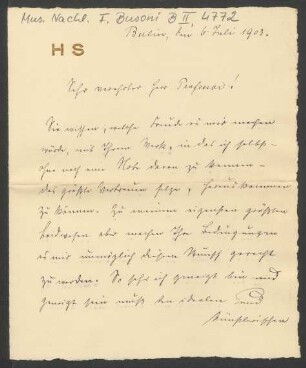 Mus. Nachl. F. Busoni B II, 4772
Berlin, den 6 Juli 1903.
H S
Sehr verehrter Herr Professor!
Sie wissen, welche Freude es mir machen
würde, mit Ihrem Werk, in das ich selbst –
ohne noch eine Note davon zu kennen –
das größte Vertrauen setze, herauskommen
zu können. Zu meinem eigenen größten
Bedauern aber machen Ihre Bedingungen
es mir unmöglich diesem Wunsch gerecht
zu werden. So sehr ich geneigt bin und
geneigt sein muß den idealen und
künstlerischen